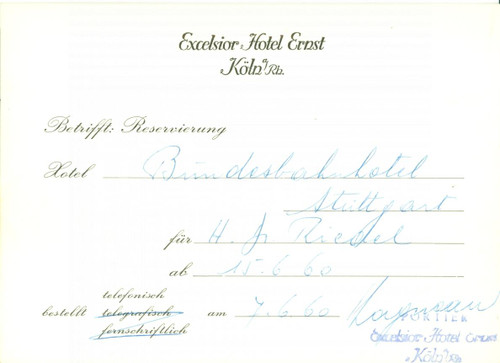 Excelsior Hotel Ernst
Köln a/Rh.
Betrifft: Reservierung
Hotel Bundesbahnhotel
Stuttgart
für H. Riedel
ab 15.6.60
telefonisch
bestellt telegrafisch am 7.6.60
fernschriftlich
PORTIER
Excelsior Hotel Ernst
Köln a/Rh